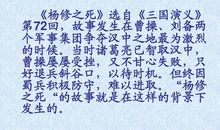 《杨修之死》选自《三国演义》
第72回。故事发生在曹操、刘备两
个军事集团争夺汉中之地最为激烈
的时候。当时诸葛亮已智取汉中，
曹操屡屡受挫，又不甘心失败，只
好退兵斜谷口，以待时机。但终因
蜀兵积极防守，难以进取。“杨修
之死“的故事就是在这样的背景下
发生的。